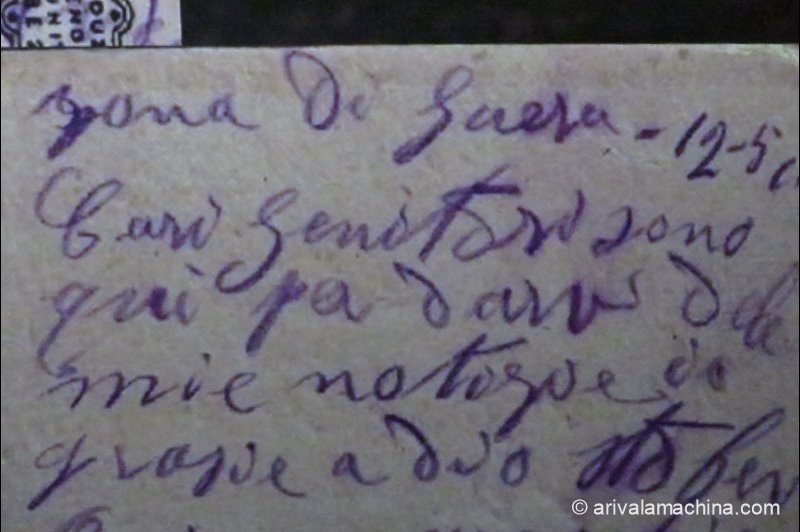 zona di Guera - 12-5
Cari Genitori sono
qui pa darvi dele
mie notizie io
grazie a dio stò ben
© arivalamachina.com